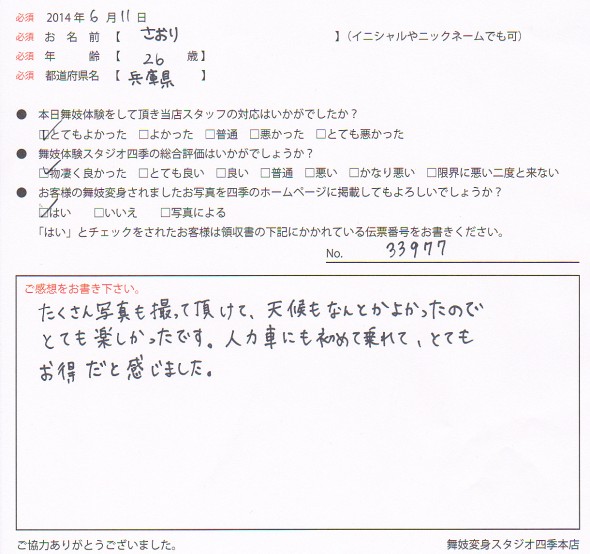 必須 2014年6月11日
必須 お名前【 さおり 】(イニシャルやニックネームでも可)
必須 年齢【 26 歳】
必須 都道府県名【 兵庫県 】
● 本日舞妓体験をして頂き当店スタッフの対応はいかがでしたか?
☑とてもよかった □よかった □普通 □悪かった □とても悪かった
● 舞妓体験スタジオ四季の総合評価はいかがでしょうか?
☑物凄く良かった □とても良い □良い □普通 □悪い □かなり悪い □限界に悪い二度と来ない
● お客様の舞妓変身されましたお写真を四季のホームページに掲載してもよろしいでしょうか?
☑はい □いいえ □写真による
「はい」とチェックをされたお客様は領収書の下記にかかれている伝票番号をお書きください。
No. 33977
ご感想をお書き下さい。
たくさん写真も撮って頂けて、天候もなんとかよかったので
とても楽しかったです。人力車にも初めて乗れて、とても
お得だと感じました。
ご協力ありがとうございました。 舞妓変身スタジオ四季本店